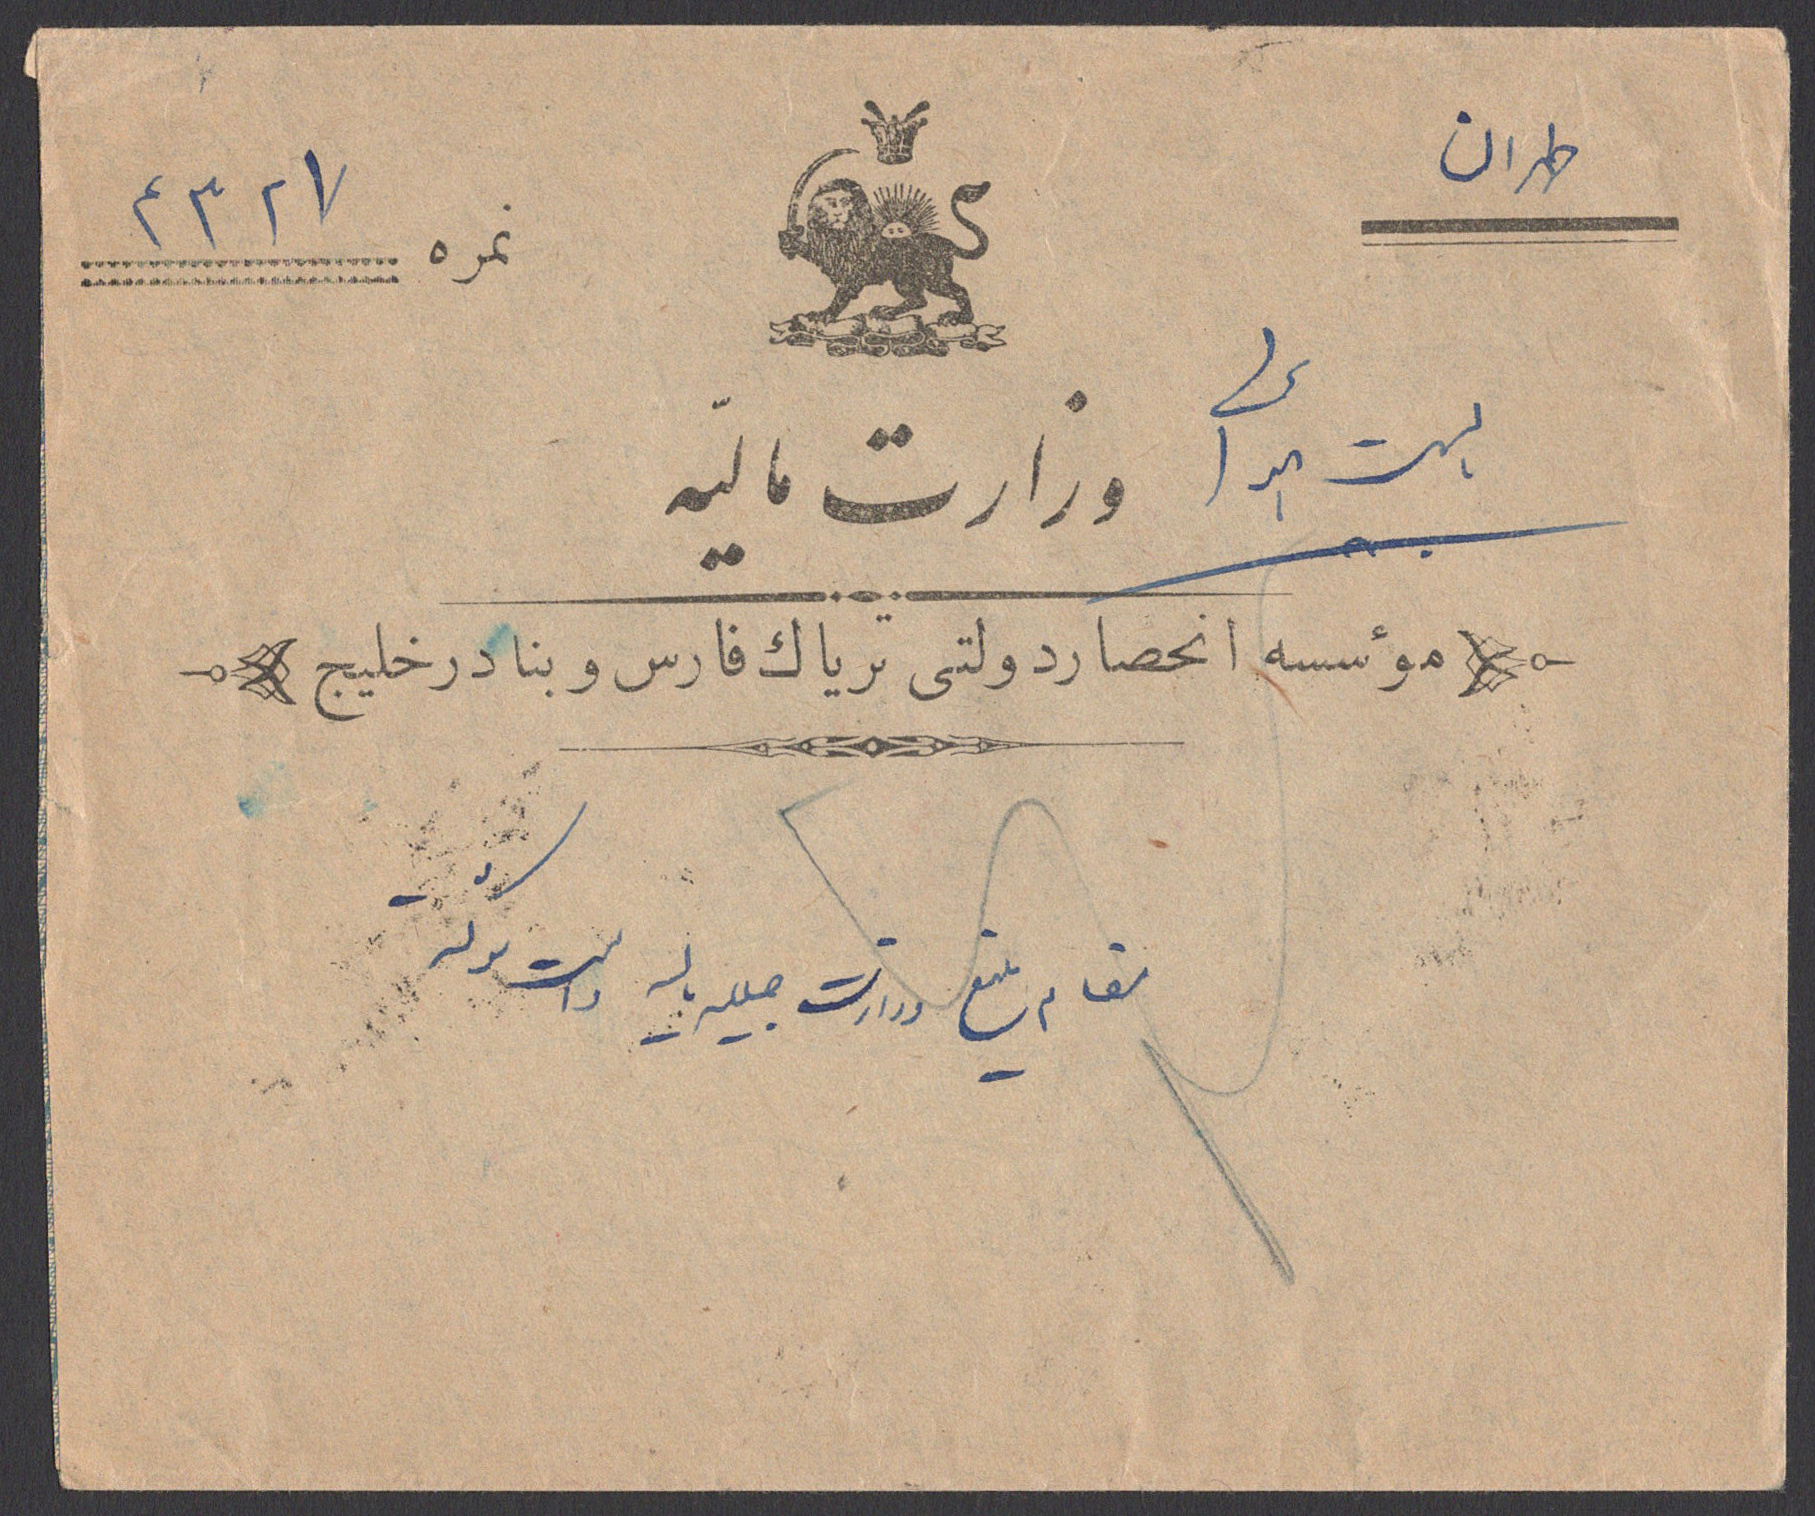 طهران
نمره ۴۳۲۷
وزارت مالیّه
مؤسسه انحصار دولتی تریاك فارس و بنادر خلیج
مقام منیع وزارت جلیله مالیه دامت شوکته